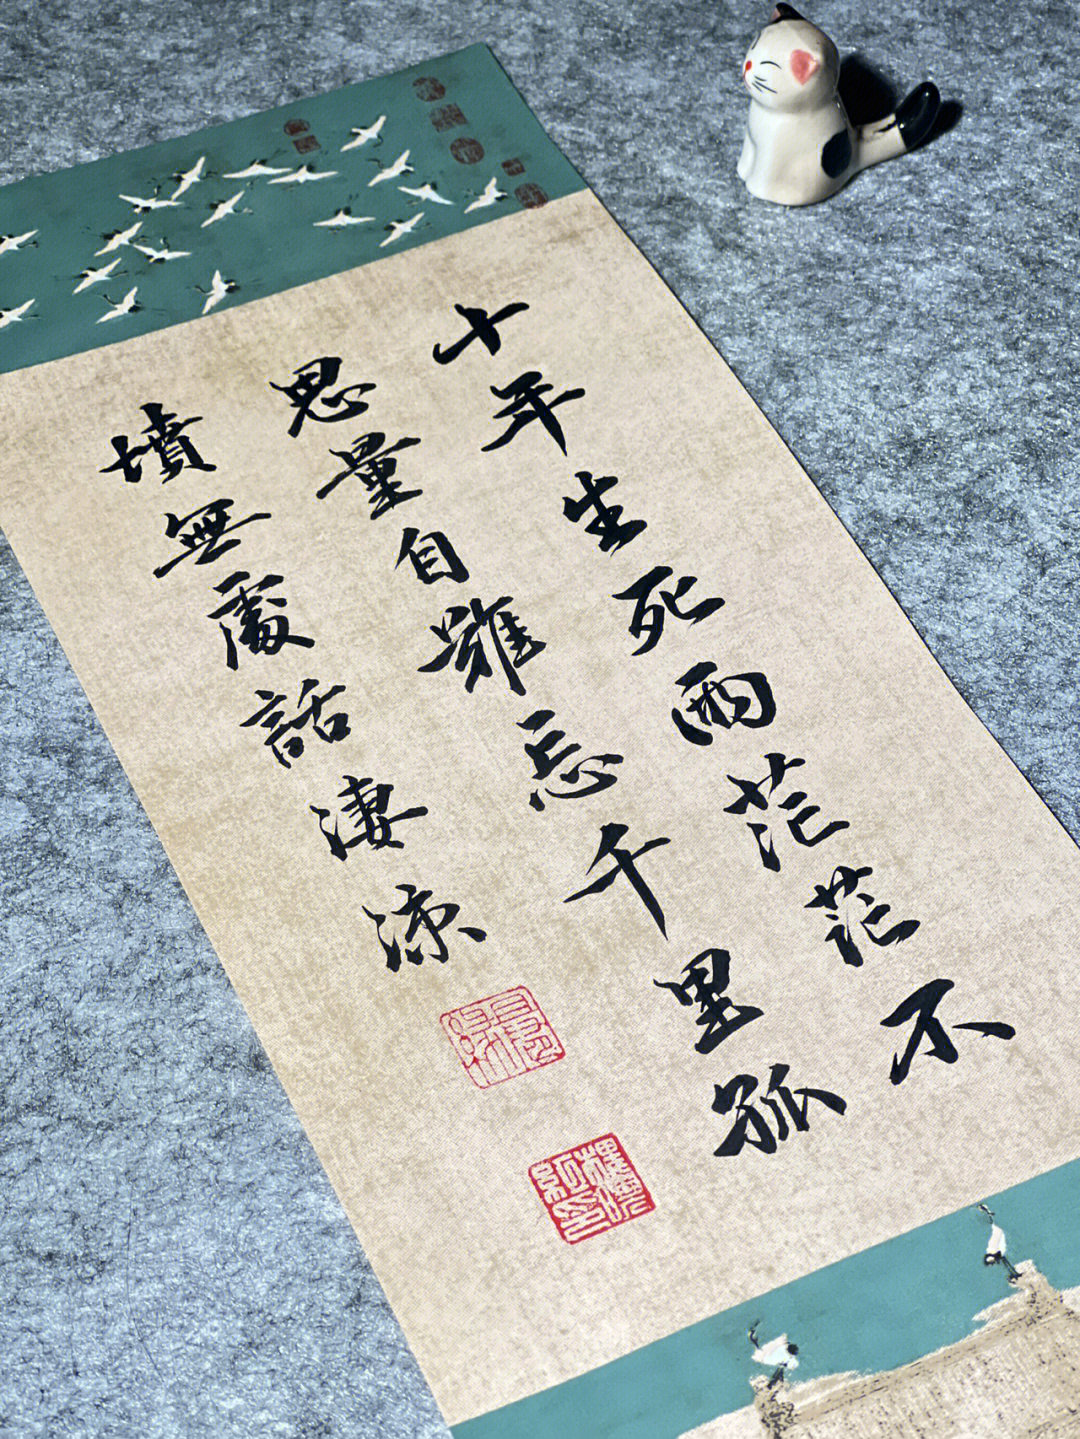 十年生死兩茫茫不
思量自難忘千里孤
墳無處話淒涼